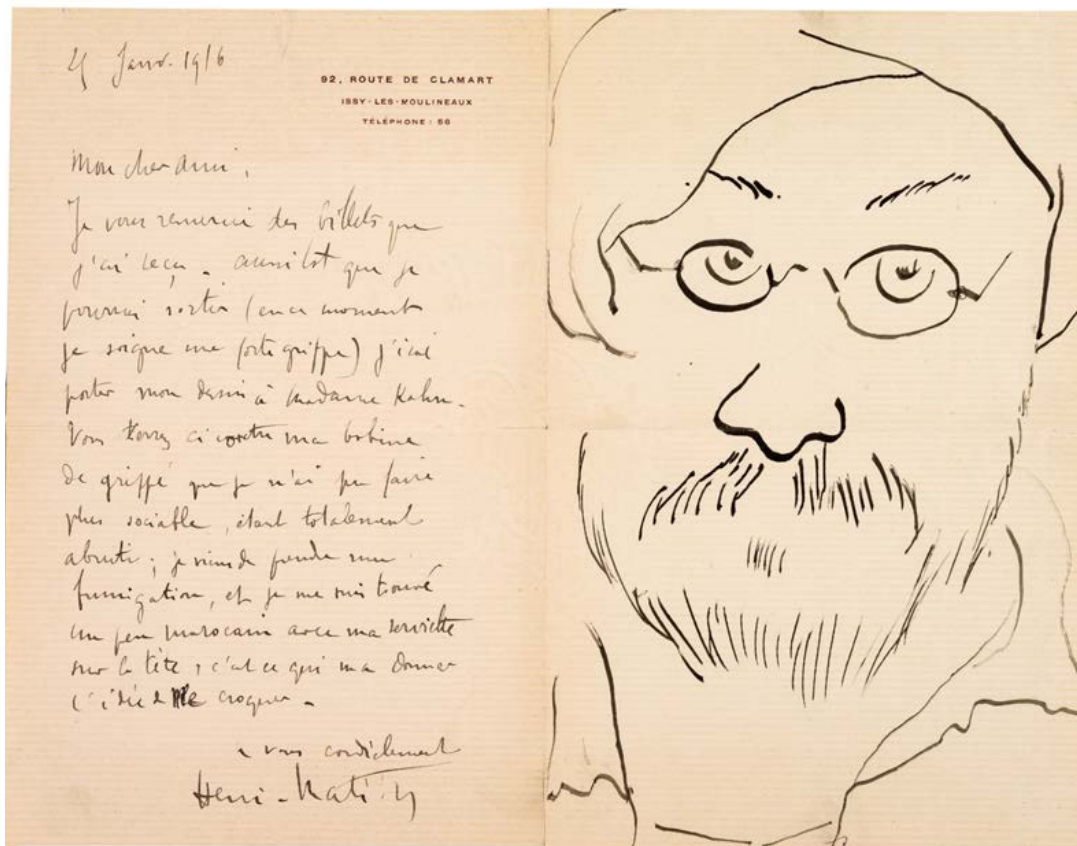 Janv. 1916
92, ROUTE DE CLAMART
ISSY-LES-MOULINEAUX
TÉLÉPHONE : 56
Mon cher Ami,
Je vous remercie des billets que
j'ai reçu. Aussitôt que je
pourrai sortir (en ce moment
je soigne une forte grippe) j'irai
porter mon dessin à Madame Kahn.
Vous verrez ci contre ma bobine
de grippé que je n'ai pu faire
plus sociable, étant totalement
abruti ; je viens de prendre une
fumigation, et je me suis trouvé
un peu marocain avec ma serviette
sur la tête, c'est ce qui m'a donner
l'idée de me croquer.
à vous cordialement
Henri-Matisse